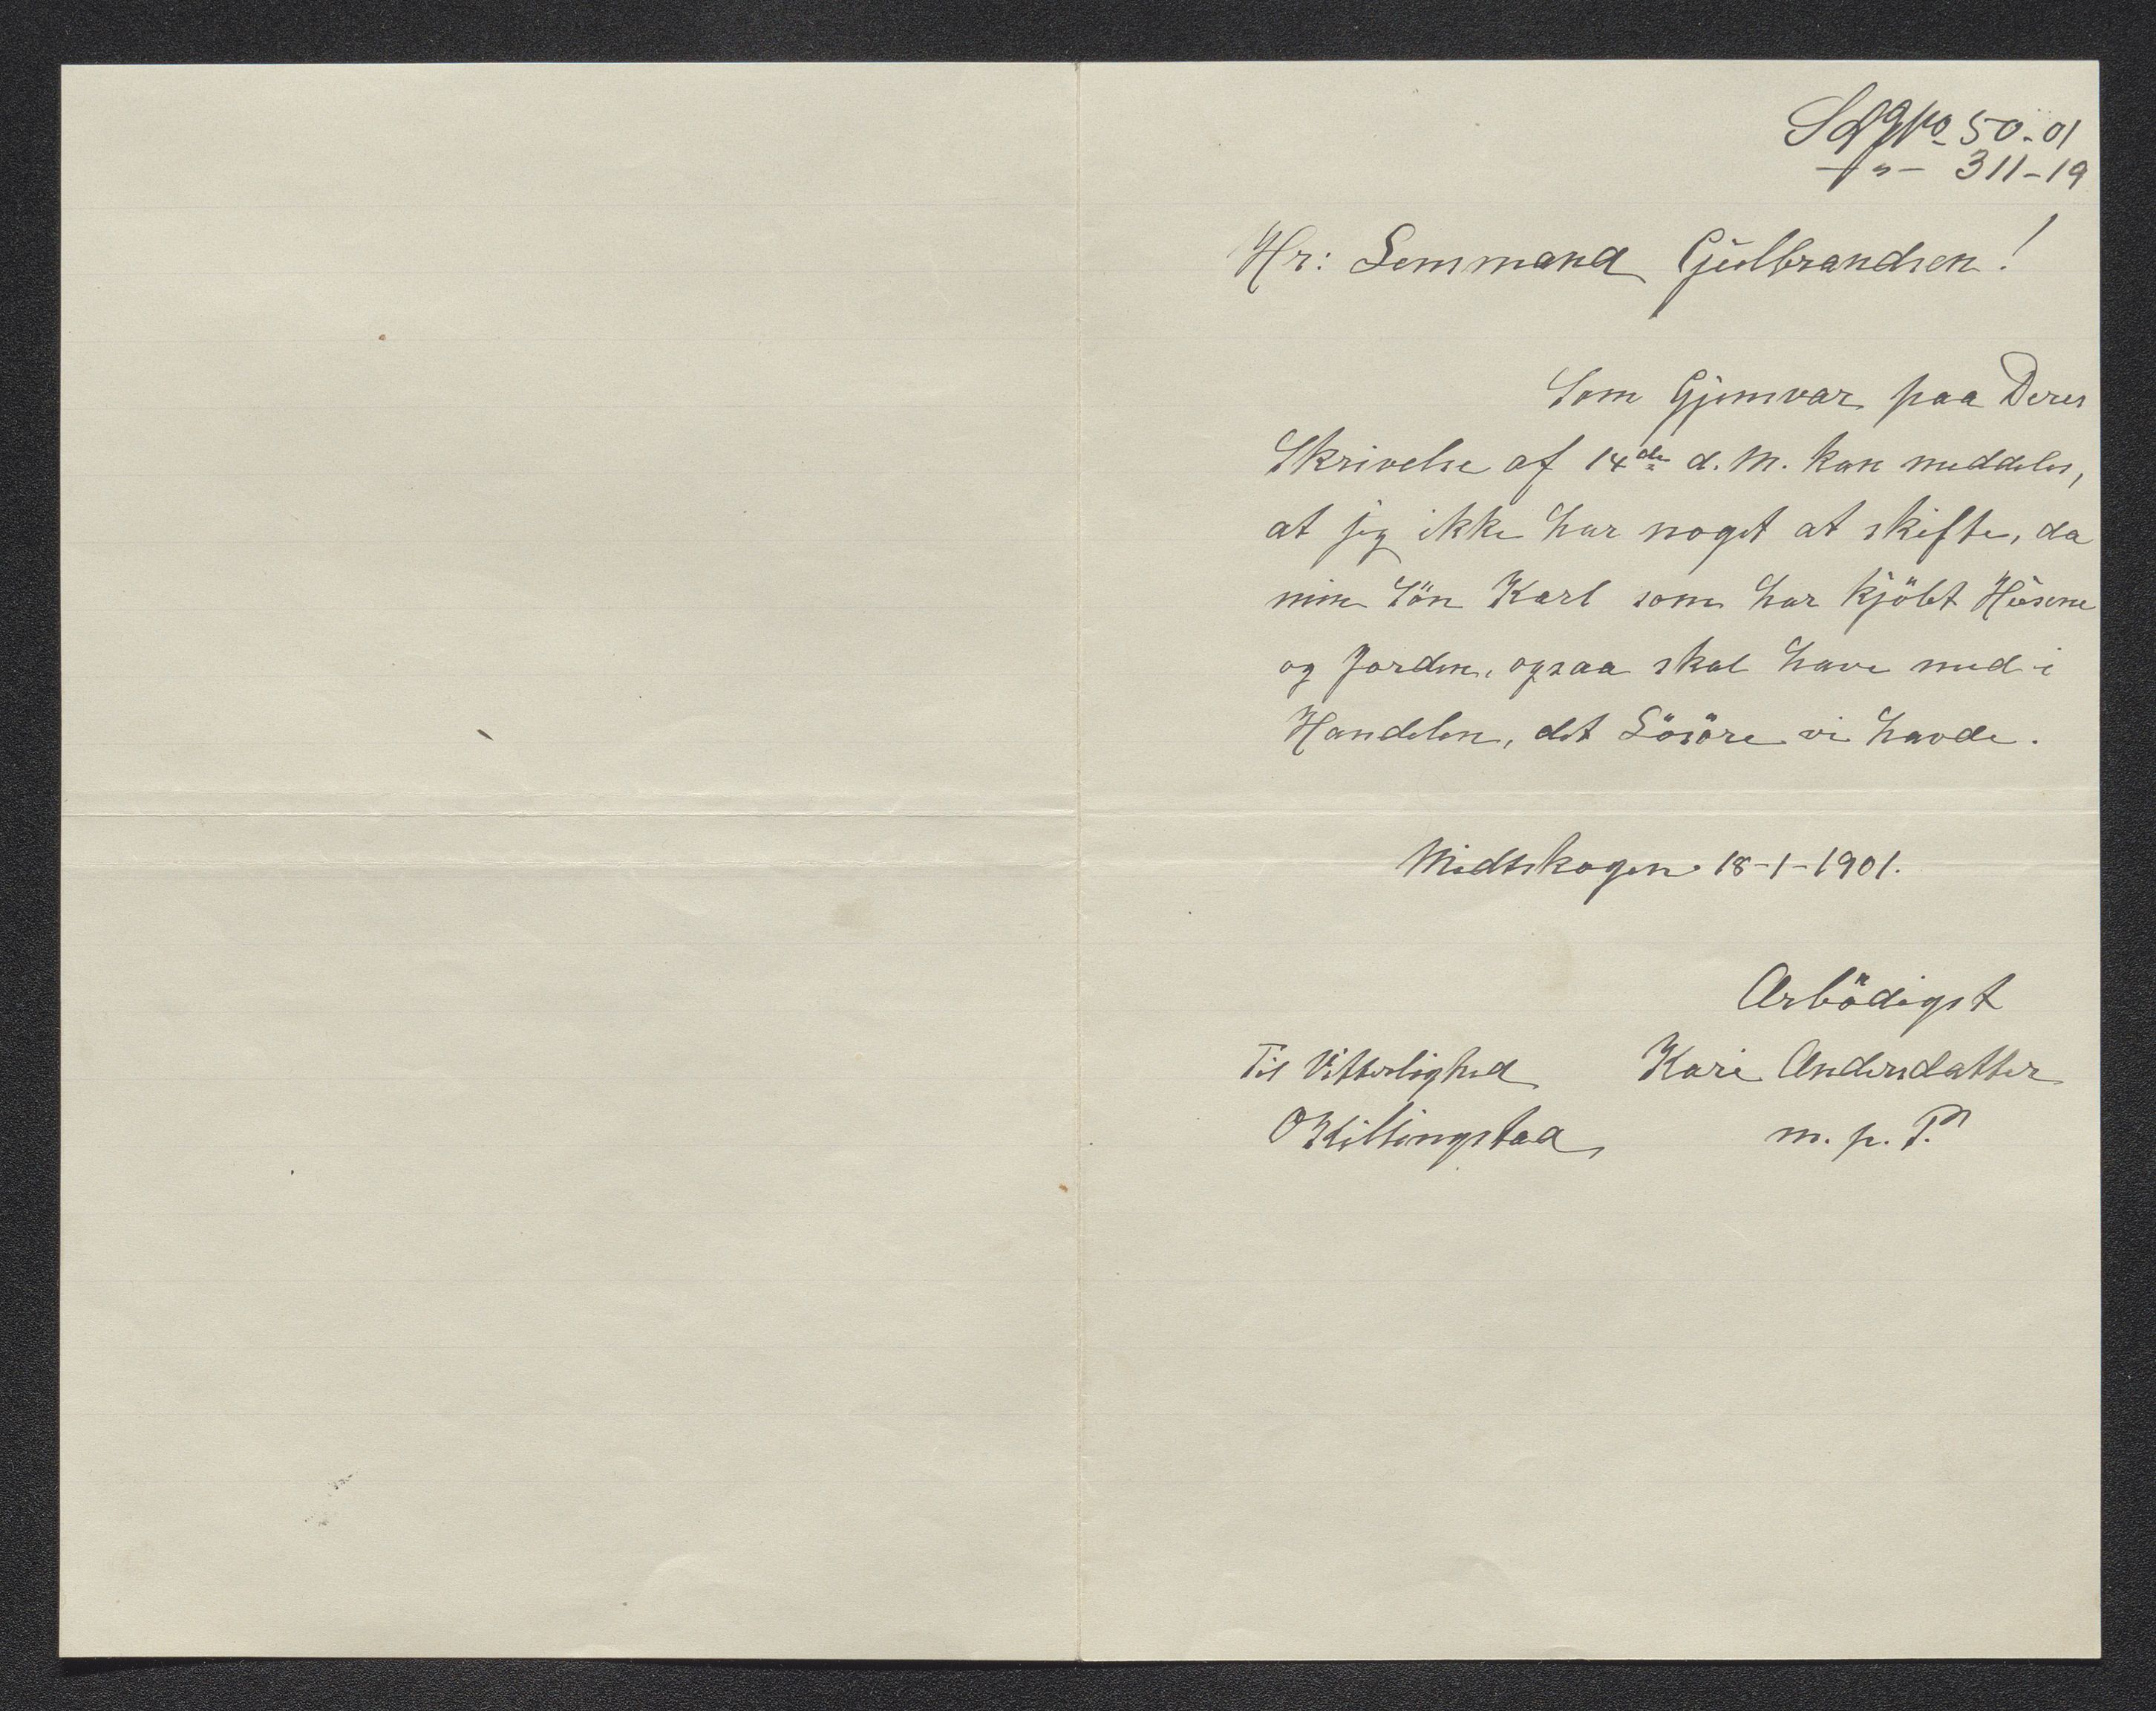 50-01
311-19
Hr: Lensmand Gulbrandsen!
Som Gjensvar paa Deres
Skrivelse af 14de d. M. kan meddeles,
at jeg ikke har noget at skifte, da
min Sön Karl som har kjöbt Husene
og Jorden, ogsaa skal have med i
Handelen, det Lösöre vi havde.
Midtskogen 18-1-1901.
Ærbödigst
Til Vitterlighed Kari Andersdatter
O Killingstad m. p. P.